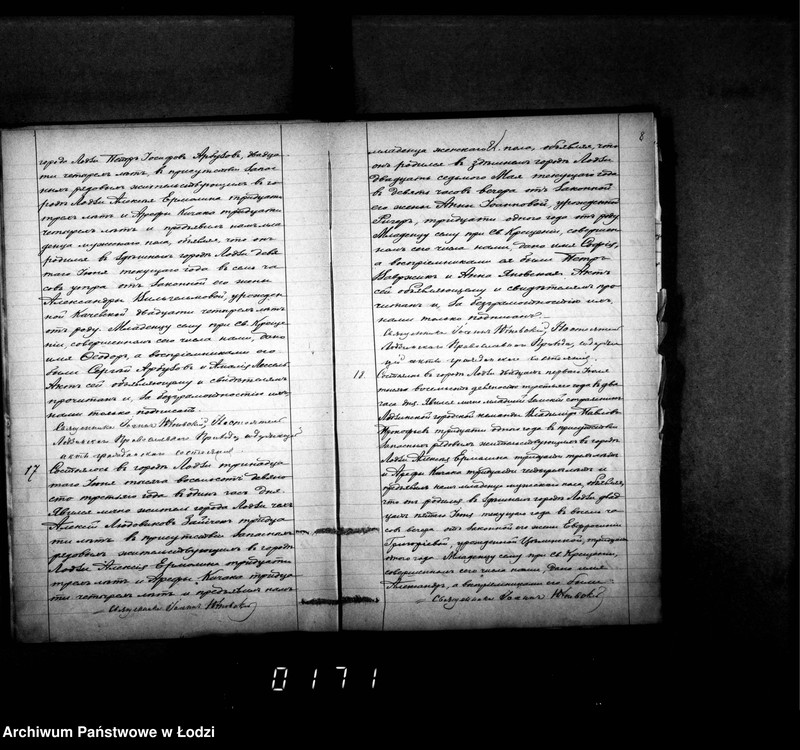 города Лодзи Петръ Іосифовъ Арбузовъ, двадца-
ти четырехъ лѣтъ, въ присутствіи запас-
ныхъ рядовыхъ жительствующихъ въ го-
родѣ Лодзи Алексѣя Ермашина тридцати
трехъ лѣтъ и Арефы Качана тридцати
четырехъ лѣтъ и предъявилъ намъ мла-
денца мужескаго пола, объявляя, что онъ
родился въ здѣшнемъ городѣ Лодзи девя-
таго Іюня текущаго года въ семь ча-
совъ утра отъ законной его жены
Александры Вильгельмовой, урожден-
ной Качевской двадцати четырехъ лѣтъ
отъ роду. Младенцу сему при Св. Креще-
ніи, совершенномъ сего числа нами, дано
имя Ѳедоръ, а воспріемниками его
были Сергѣй Арбузовъ и
Актъ сей объявляющему и свидѣтелямъ
прочитанъ и, за безграмотностію ихъ
нами только подписанъ.
Священникъ
Лодзинскаго Православнаго Прихода, содержащій
акты гражданскаго состоянія
17
Состоялось въ городѣ Лодзи тринадца-
таго Іюня тысяча восемьсотъ девяно-
сто третьяго года въ одинъ часъ дня.
Явился лично житель города Лодзи
Алексѣй Людовиковъ тридца-
ти лѣтъ въ присутствіи запасныхъ
рядовыхъ жительствующихъ въ городѣ
Лодзи Алексѣя Ермашина тридцати
трехъ лѣтъ и Арефы Качана тридца-
ти четырехъ лѣтъ и предъявилъ намъ
Священникъ
8
младенца женскаго пола, объявляя, что
онъ родился въ здѣшнемъ городѣ Лодзи
двадцать седьмого Мая текущаго года
въ девять часовъ вечера отъ законной
его жены Анны урожденной
тридцати одного года отъ роду
Младенцу сему при Св. Крещеніи, совершен-
номъ сего числа нами, дано имя Софія,
а воспріемниками ея были Петръ
и Анна Яновская. Актъ
сей объявляющему и свидѣтелямъ про-
читанъ и, за безграмотностію ихъ,
нами только подписанъ.
Священникъ
Лодзинскаго Православнаго Прихода, содержа-
щій акты гражданскаго состоянія.
18.
Состоялось въ городѣ Лодзи двадцать перваго Іюня
тысяча восемьсотъ девяносто третьяго года въ два
часа дня. Явился лично младшій
Лодзинской городской команды Владиміръ Павловъ
Прокофьевъ тридцати одного года въ присутствіи
запасныхъ рядовыхъ жительствующихъ въ городѣ
Лодзи Алексѣя Ермашина тридцати трехъ лѣтъ
и Арефы Качана тридцати четырехъ лѣтъ и
предъявилъ намъ младенца мужескаго пола, объявляя,
что онъ родился въ здѣшнемъ городѣ Лодзи двад-
цать пятаго текущаго года въ восемь ча-
совъ вечера отъ законной его жены Евфросиніи
Григорьевой, урожденной тридцати
одного года. Младенцу сему при Св. Крещеніи,
совершенномъ сего числа нами, дано имя
Александръ, а воспріемниками его были
Священникъ
0171
Archiwum Państwowe w Łodzi